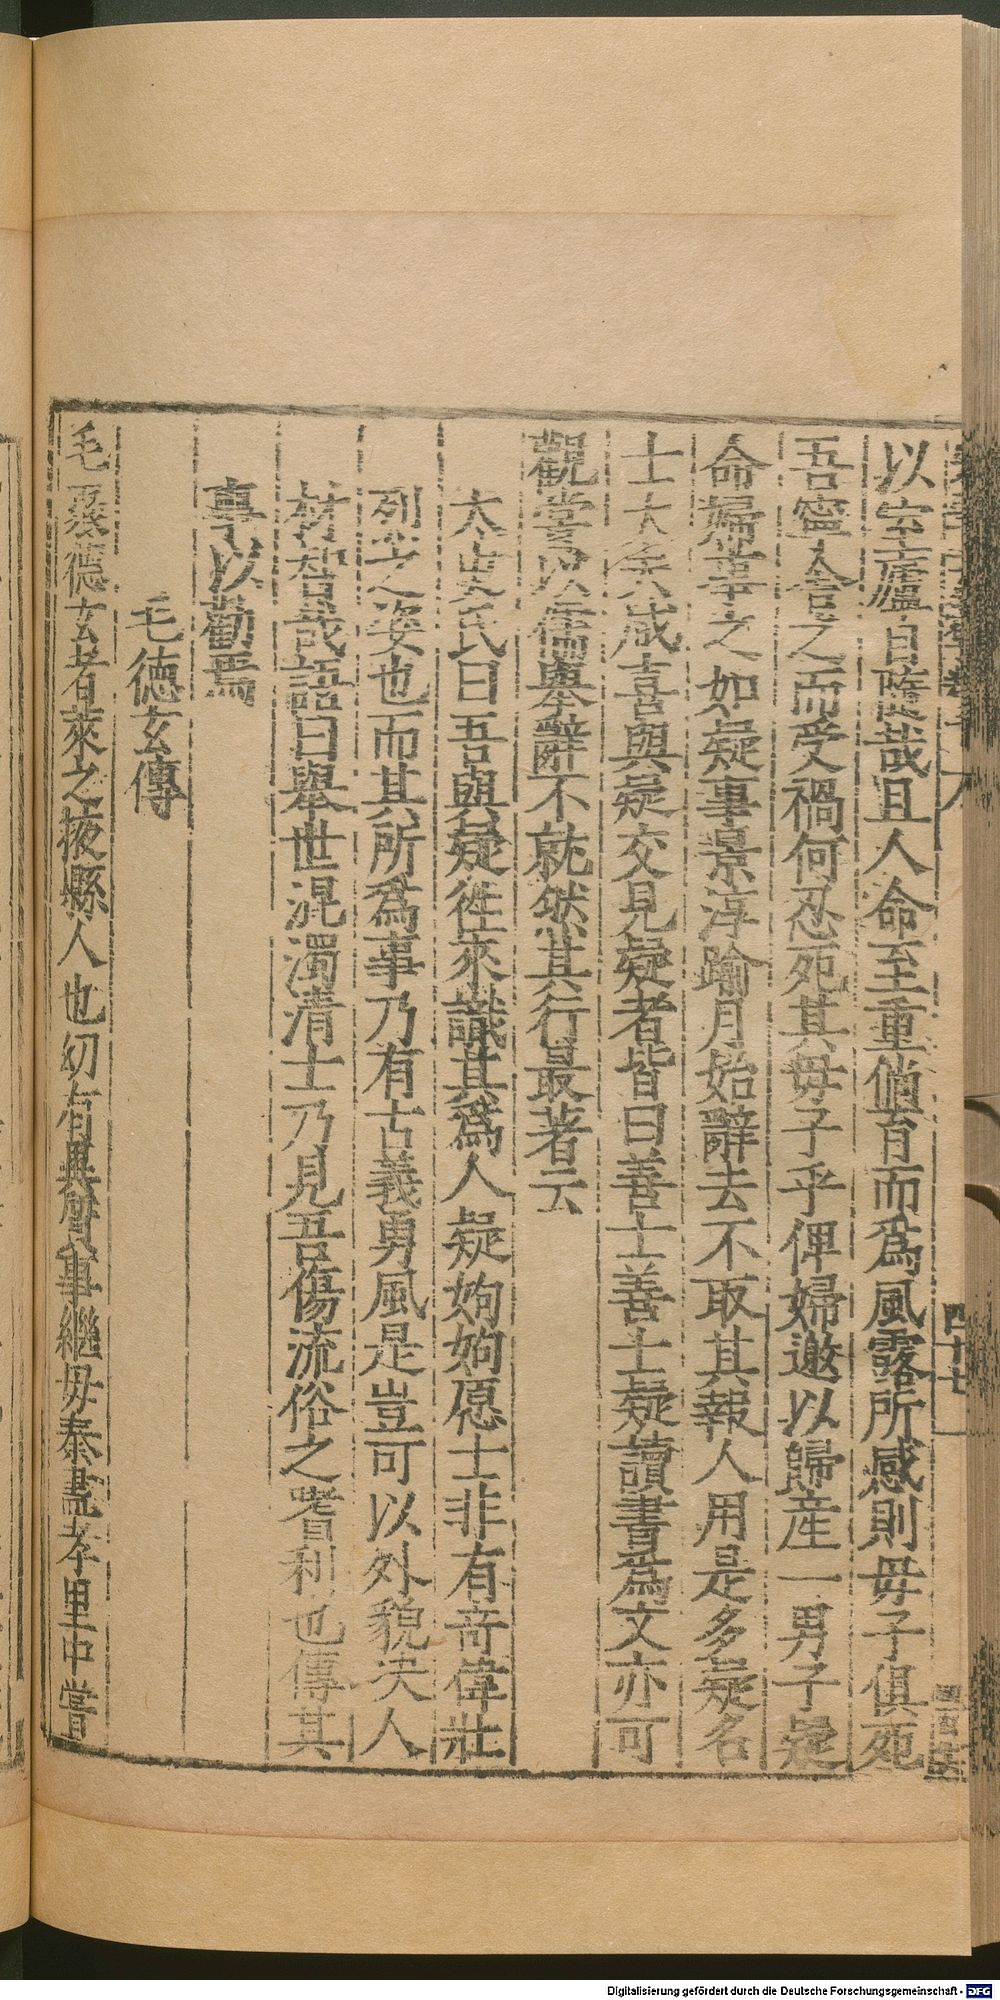 以室廬自隘哉且人命至重倘育而爲風露所感則毋子俱死
吾寧舍之而受禍何忍死其毋子乎俾婦邀以歸産一男子疑
命婦事之如疑事景淳踰月始辭去不取其報人用是多疑名
士大夫咸喜與疑交見疑者皆曰善士善士疑讀書爲文亦可
觀嘗以儒舉辭不就然其行最著云
太史氏曰吾與疑徃來識其爲人疑姁姁愿士非有竒偉壯
烈之姿也而其所爲事乃有古義勇風是豈可以外貌决人
材智哉語曰舉世混濁清士乃見吾傷流俗之嗜利也傳其
事以勸焉
毛德玄傳
毛聚德玄者萊之掖縣人也幼有異質事繼毋泰盡孝里中嘗
四十七
Digitalisierung gefördert durch die Deutsche Forschungsgemeinschaft - DFG